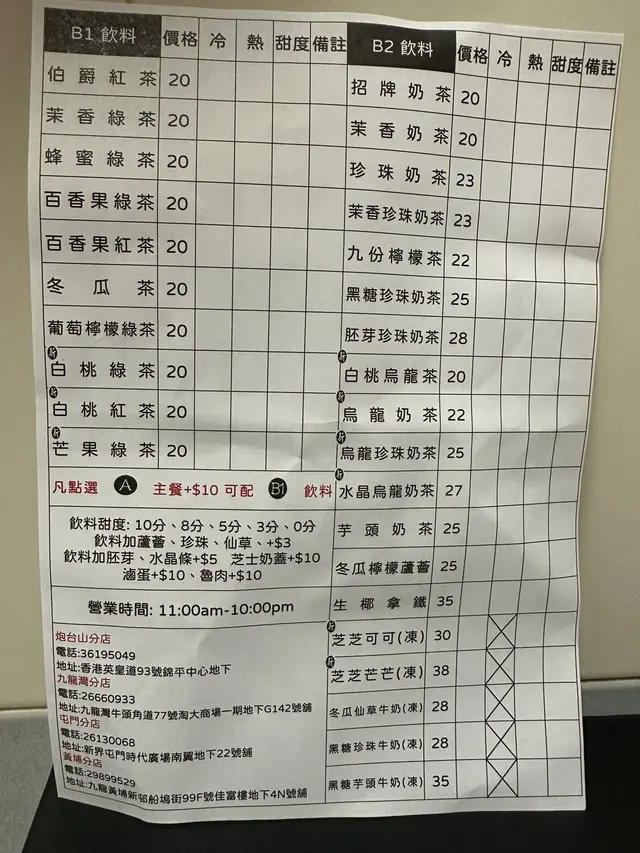 B1 飲料 價格 冷 熱 甜度 備註
伯爵紅茶 20
茉香綠茶 20
蜂蜜綠茶 20
百香果綠茶 20
百香果紅茶 20
冬瓜茶 20
葡萄檸檬綠茶 20
新 白桃綠茶 20
新 白桃紅茶 20
新 芒果綠茶 20
凡點選 A 主餐+$10 可配 B1 飲料
飲料甜度: 10分、8分、5分、3分、0分
飲料加蘆薈、珍珠、仙草、+$3
飲料加胚芽、水晶條+$5 芝士奶蓋+$10
滷蛋+$10、魯肉+$10
營業時間: 11:00am-10:00pm
炮台山分店
電話:36195049
地址:香港英皇道93號錦平中心地下
九龍灣分店
電話:26660933
地址:九龍灣牛頭角道77號淘大商場一期地下G142號舖
屯門分店
電話:26130068
地址:新界屯門時代廣場南翼地下22號舖
黃埔分店
電話:29899529
地址:九龍黃埔新邨船塢街99F號佳富樓地下4N號舖
B2 飲料 價格 冷 熱 甜度 備註
招牌奶茶 20
茉香奶茶 20
珍珠奶茶 23
茉香珍珠奶茶 23
九份檸檬茶 22
黑糖珍珠奶茶 25
胚芽珍珠奶茶 28
新 白桃烏龍茶 20
新 烏龍奶茶 22
新 烏龍珍珠奶茶 25
新 水晶烏龍奶茶 27
芋頭奶茶 25
冬瓜檸檬蘆薈 25
生椰拿鐵 35
新 芝芝可可(凍) 30
新 芝芝芒芒(凍) 38
冬瓜仙草牛奶(凍) 28
黑糖珍珠牛奶(凍) 28
黑糖芋頭牛奶(凍) 35